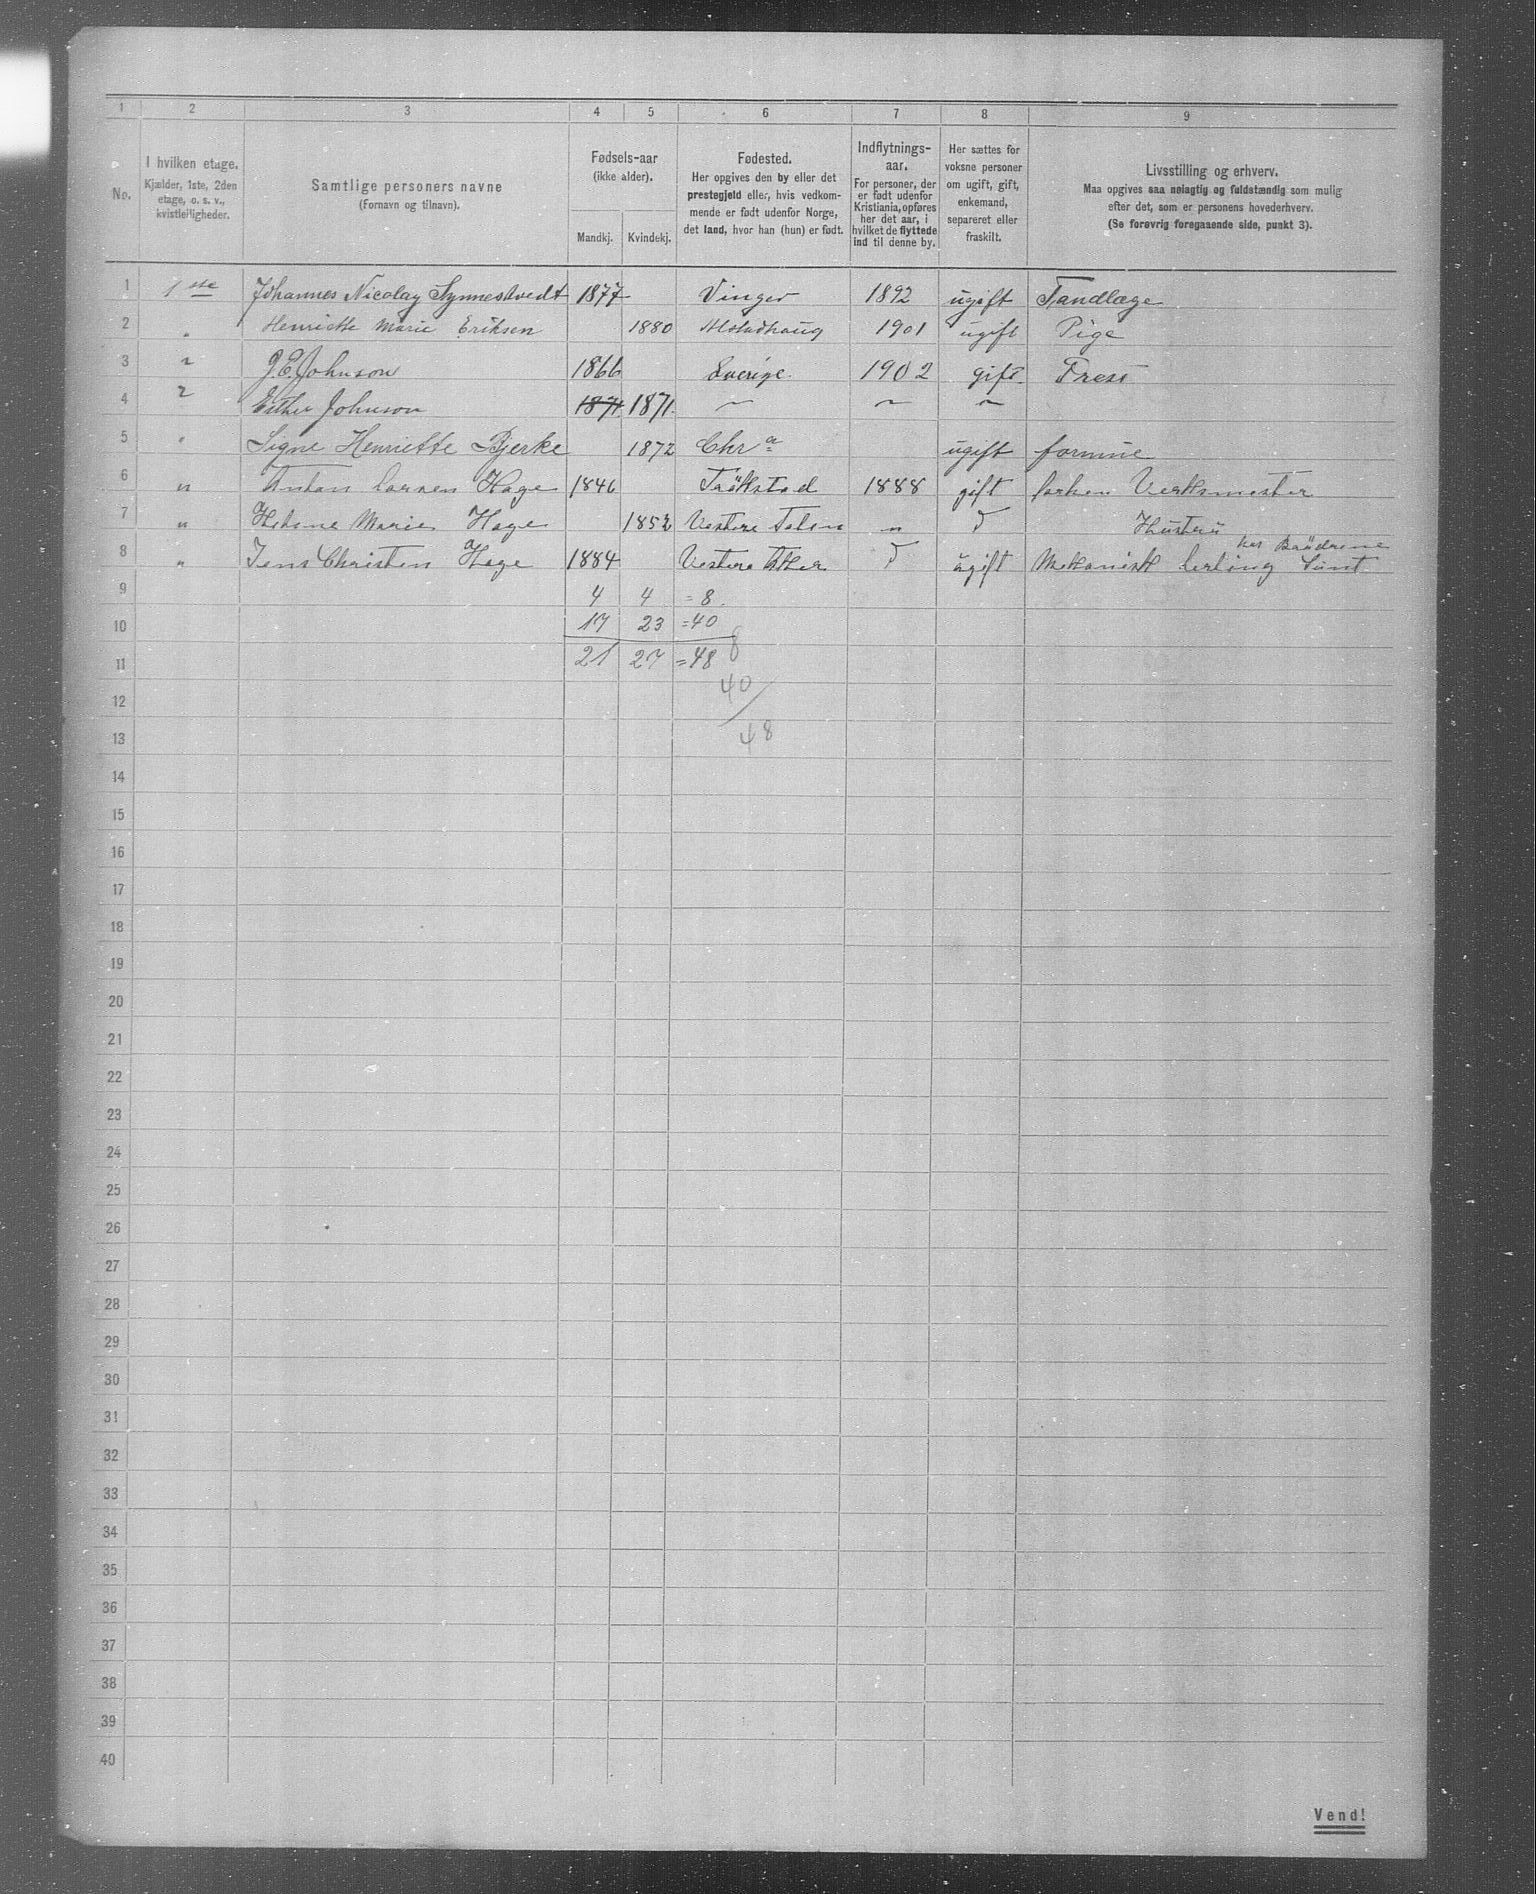 1 2 3 4 5 6 7 8 9
No.
I hvilken etage.
Kjælder, 1ste, 2den
etage, o. s. v.,
kvistleiligheder.
Samtlige personers navne
(Fornavn og tilnavn).
Fødsels-aar
(ikke alder).
Mandkj. Kvindekj.
Fødested.
Her opgives den by eller det
prestegjeld eller, hvis vedkom-
mende er født udenfor Norge,
det land, hvor han (hun) er født.
Indflytnings-
aar.
For personer, der
er født udenfor
Kristiania, opføres
her det aar, i
hvilket de flyttede
ind til denne by.
Her sættes for
voksne personer
om ugift, gift,
enkemand,
separeret eller
fraskilt.
Livsstilling og erhverv.
Maa opgives saa nøiagtig og fuldstændig som mulig
efter det, som er personens hovederhverv.
(Se forøvrig foregaaende side, punkt 3).
1 1ste Johannes Nicolay Synnestvedt 1877 Vinger 1892 ugift Tandlæge
2 " Henriette Marie Eriksen 1880 Alstadhaug 1901 ugift Pige
3 " J. E. Johnson 1866 Sverige 1902 gift
4 " Esther Johnson 1871 1871 " " "
5 " Signe Henriette Bjerke 1872 Chr a ugift formue
6 " Anton Hage 1846 Trökstad 1888 gift Verksmester
7 " Marie Hage 1852 Vestre " D Hustru
8 " Jens Christen Hage 1884 Vestre Aker D ugift Mekanisk hos Brödrene
9 4 4 = 8
10 17 23 = 40
11 21 27 = 48 8
12 40
13 48
14
15
16
17
18
19
20
21
22
23
24
25
26
27
28
29
30
31
32
33
34
35
36
37
38
39
40
Vend!